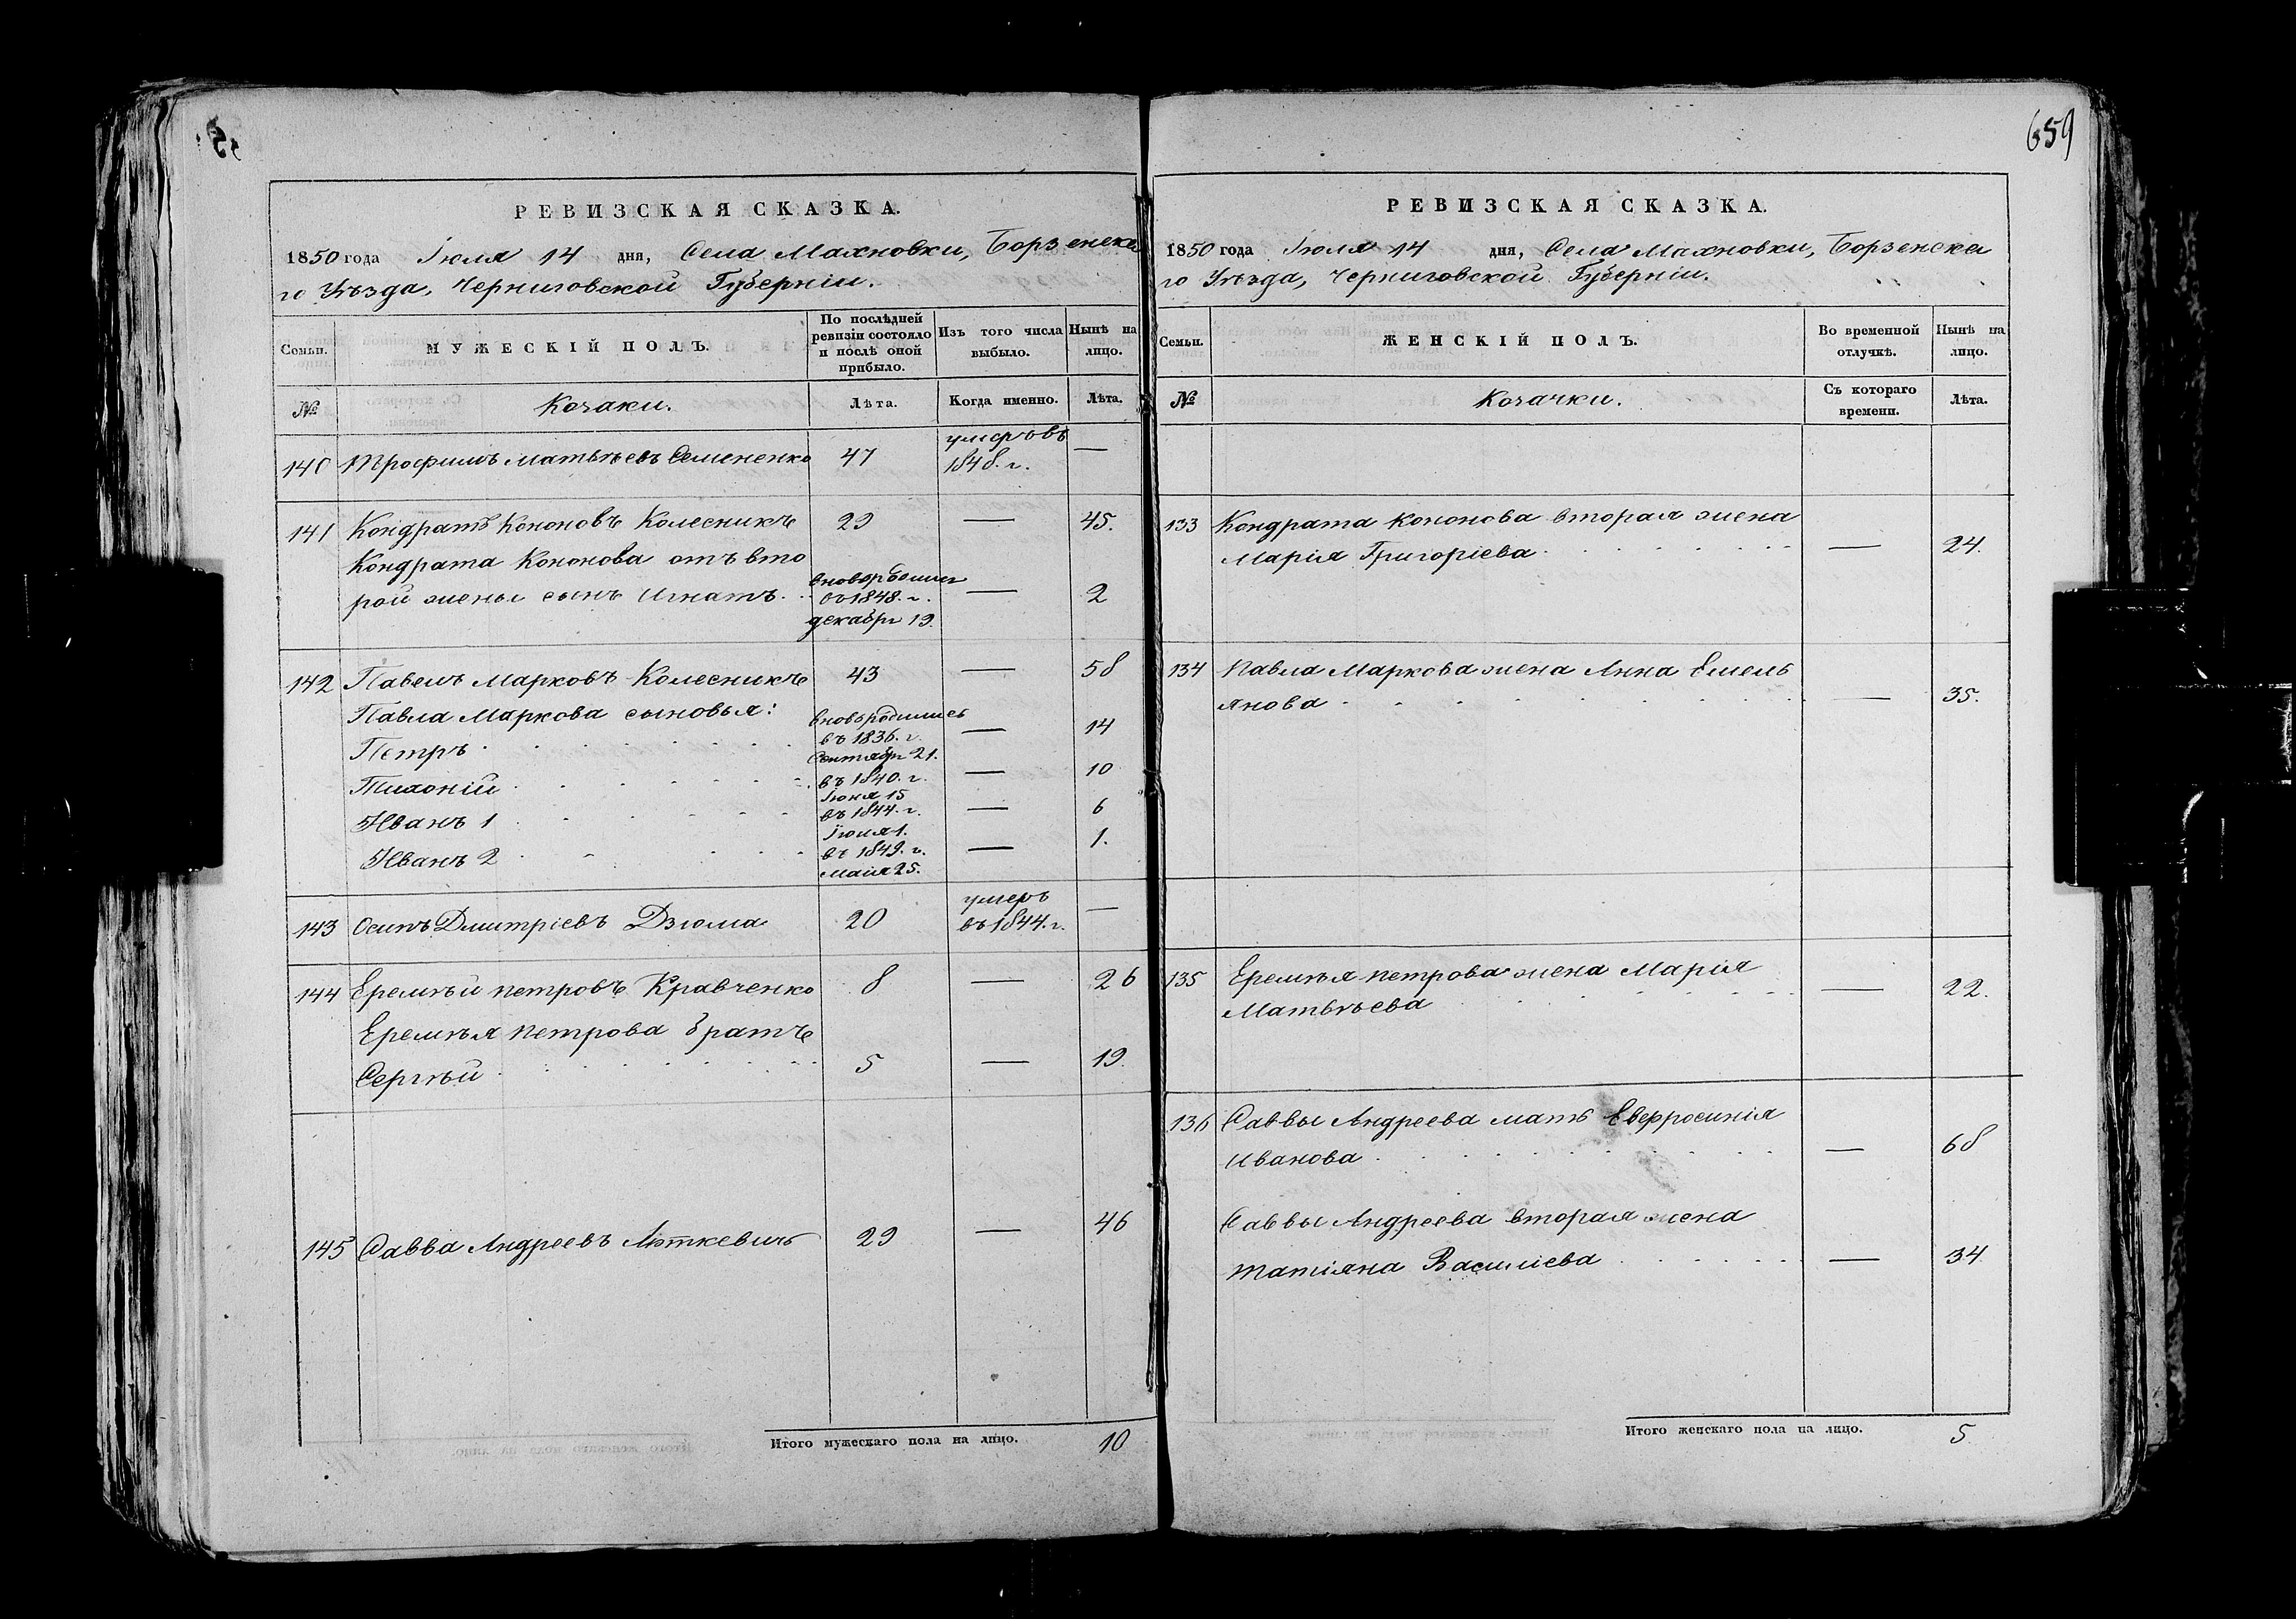 659
РЕВИЗСКАЯ СКАЗКА.
1850 года Іюля 14 дня, Села Махновки, Борзенска
го Уѣзда, Черниговской Губерніи.
Семьи.
МУЖЕСКІЙ ПОЛЪ.
По послѣдней
ревизіи состояло
и послѣ оной
прибыло.
Изъ того числа
выбыло.
Нынѣ на
лицо.
№
Козаки.
Лѣта.
Когда именно.
Лѣта.
140 Трофимъ Матвѣевъ Семененко 47 умеръ въ —
1848. г.
141 Кондратъ Кононовъ Колесникъ 29 — 45.
Кондрата Кононова отъ вто
рой жены сынъ Игнатъ. вновь родился — 2
въ 1848. г.
декабря 19.
142 Павелъ Марковъ Колесникъ 43 — 58
Павла Маркова сыновья:
Петръ вновь родились — 14
въ 1836. г.
Сентября 21.
Тихоній въ 1840. г. — 10
Іюня 15
Иванъ 1 въ 1844. г. — 6
Іюля 1.
Иванъ 2 въ 1849. г. — 1.
Маія 25.
143 Осипъ Дмитріевъ Дзюма 20 умеръ —
въ 1844. г.
144 Еремѣй Петровъ Кравченко 8 — 26
Еремѣя Петрова братъ
Сергѣй 5 — 19.
145 Савва Андреевъ Люткевичъ 29 — 46
Итого мужескаго пола на лицо. 10
РЕВИЗСКАЯ СКАЗКА.
1850 года Іюля 14 дня, Села Махновки, Борзенска
го Уѣзда, Черниговской Губерніи.
Семьи.
ЖЕНСКІЙ ПОЛЪ.
Во временной
отлучкѣ.
Нынѣ на
лицо.
№
Козачки.
Съ котораго
времени.
Лѣта.
133 Кондрата Кононова вторая жена
Марія Григоріева — 24.
134 Павла Маркова жена Анна Емель
янова — 35.
135 Еремѣя Петрова жена Марія
Матвѣева — 22.
136 Саввы Андреева мать Евфросинія
Иванова — 68
Саввы Андреева вторая жена
Татіяна Василіева — 34
Итого женскаго пола на лицо. 5